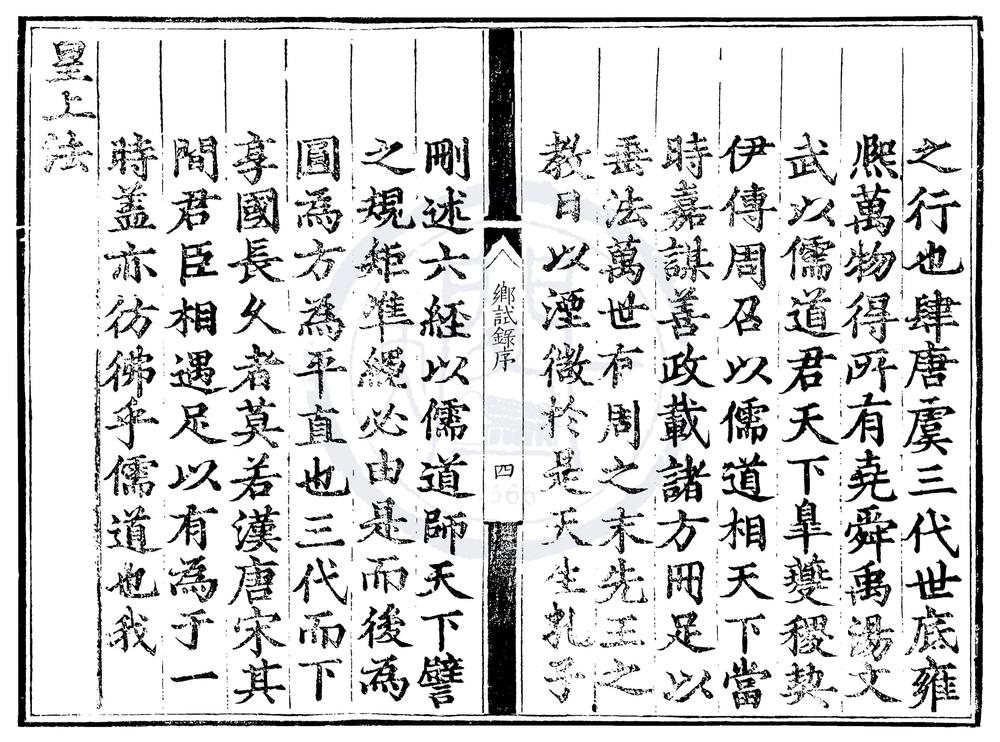 之行也肆唐虞三代世底雍
熈萬物得所有堯舜禹湯文
武以儒道君天下臯夔稷契
伊傳周召以儒道相天下當
時嘉謀善政載諸方冊足以
垂法萬世有周之末先王之
教日以湮微於是天生孔子
鄉試錄序
四
刪述六経以儒道師天下譬
之規矩準繩必由是而後為
圓為方為平直也三代而下
享國長久者莫若漢唐宋其
間君臣相遇足以有為于一
時蓋亦彷彿乎儒道也我
皇上法